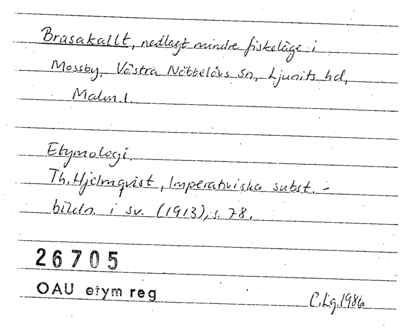 Brasakallt, nedlagt mindre fiskeläge i
Mossby, Västra Nöbbelövs sn, Ljunits hd,
Malm.l.
Etymologi.
Th. Hjelmqvist, Imperativiska subst.-
bildn. i sv. (1913), s. 78.
26705
OAU etym reg
C.Lg. 1986